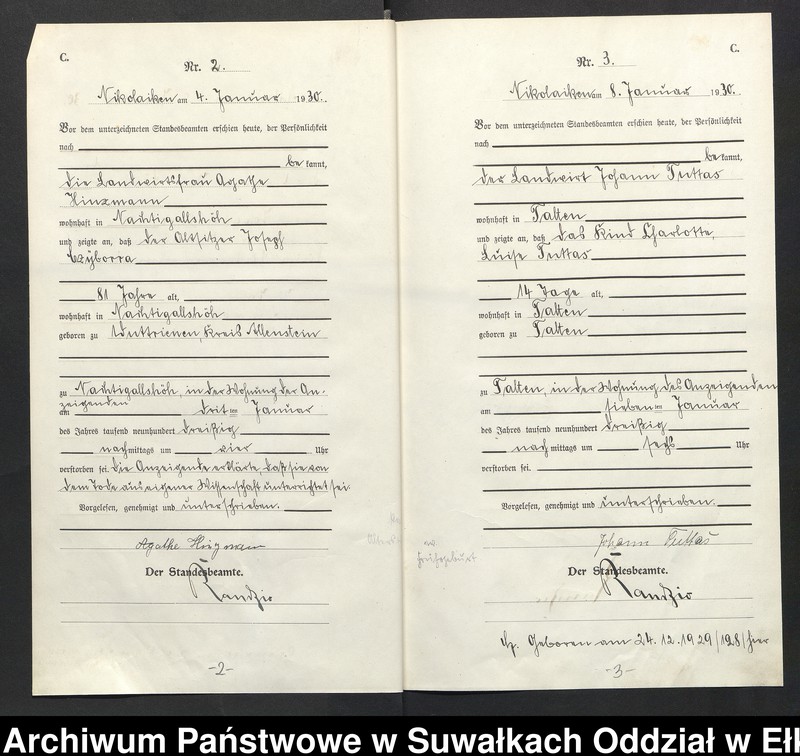 C.
Nr. 2.
Nikolaiken am 4. Januar 1930.
Vor dem unterzeichneten Standesbeamten erschien heute, der Persönlichkeit
nach
bekannt,
die Landwirtsfrau Agathe
Hinzmann
wohnhaft in Nachtigallshöh
und zeigte an, daß der Altsitzer Joseph
Czyborra
81 Jahre alt,
wohnhaft in Nachtigallshöh
geboren zu Wuttrienen, Kreis Allenstein
zu Nachtigallshöh, in der Wohnung der An-
zeigenden
am dritten Januar
des Jahres tausend neunhundert dreißig
nachmittags um vier Uhr
verstorben sei. Die Anzeigende erklärte, daß sie von
dem Tode aus eigener Wissenschaft unterrichtet sei.
Vorgelesen, genehmigt und unterschrieben.
Agathe Hinzmann
Der Standesbeamte.
Randzio
-2-
C.
Nr. 3.
Nikolaiken am 8. Januar 1930.
Vor dem unterzeichneten Standesbeamten erschien heute, der Persönlichkeit
nach
bekannt,
der Landwirt Johann Puttas
wohnhaft in Talten
und zeigte an, daß das Kind Charlotte,
Luise Puttas
14 Tage alt,
wohnhaft in Talten
geboren zu Talten
zu Talten, in der Wohnung des Anzeigenden
am siebenten Januar
des Jahres tausend neunhundert dreißig
nachmittags um sechs Uhr
verstorben sei.
Vorgelesen, genehmigt und unterschrieben.
Johann Puttas
Der Standesbeamte.
Randzio
Geboren am 24.12.1929/128/hier
-3-
Archiwum Państwowe w Suwałkach Oddział w Eł